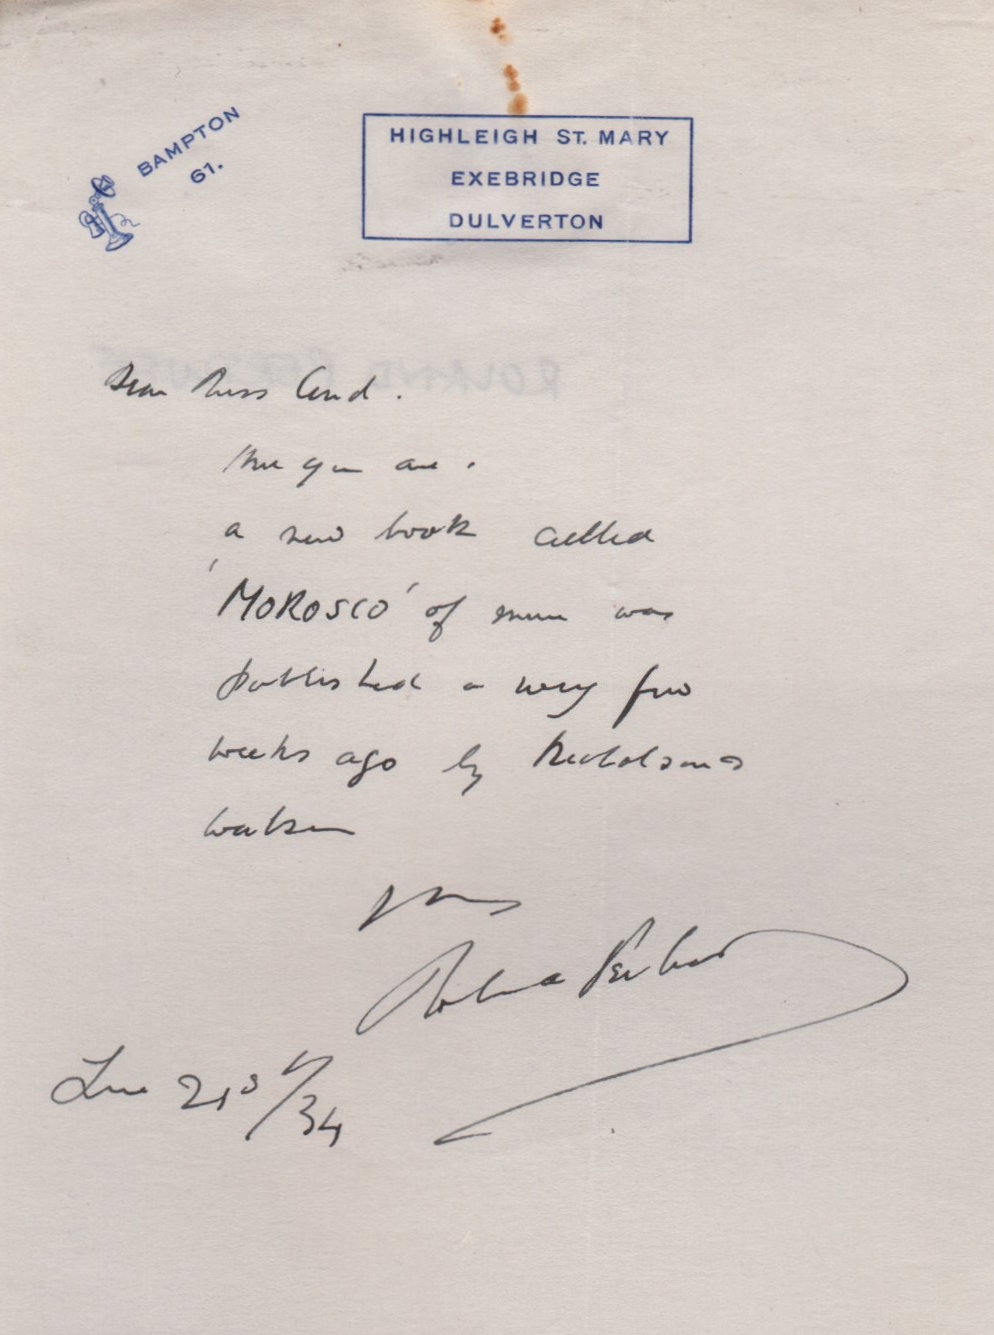 BAMPTON
61.
HIGHLEIGH ST. MARY
EXEBRIDGE
DULVERTON
Dear Miss
Here you are.
a new book called
'MOROSCO' of mine was
published a very few
weeks ago by Nicholson &
Watson
Yours
Roland Pertwee
June 21st/34